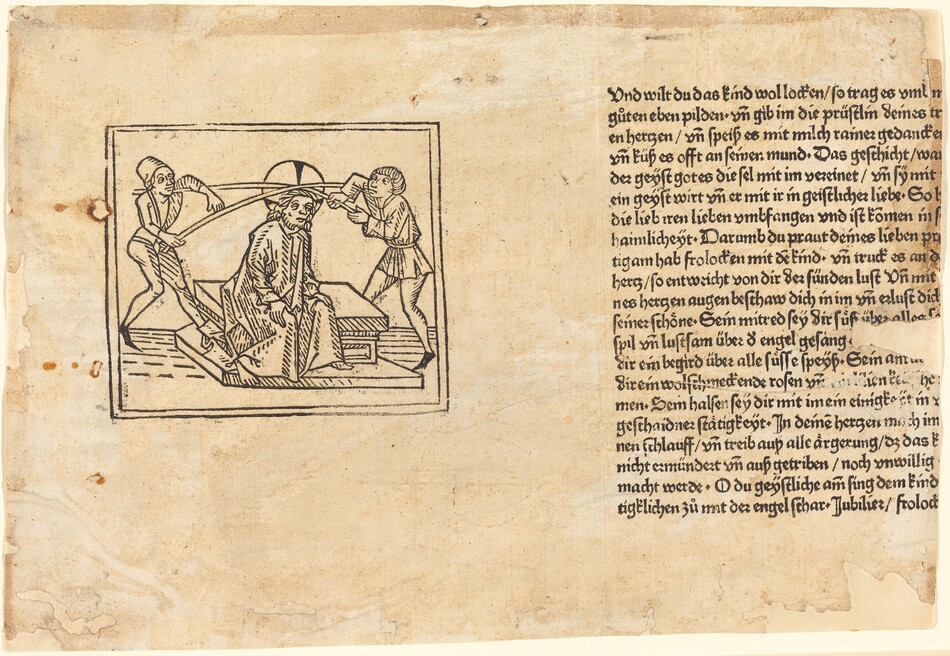 Vnd wilt du das kind wol locken/ so trag es vmb
gůten eben pilden· vn̄ gib im die prüstlin deines
en hertzen/ vn̄ speiß es mit milch rainer gedancke
vn̄ küß es offt an seinen mund· Das geschicht/
der geyst gotes die sel mit im vereinet/ vn̄ sy mit
ein geyst wirt vn̄ er mit ir in geistlicher liebe· So
die lieb iren lieben vmbfangen vnd ist kōmen in
haimlicheyt· Darumb du praut deines lieben
tigam hab frolocken mit dē kind· vn̄ truck es an
hertz/ so entweicht von dir der sünden lust Vn̄ mit
nes hertzen augen beschaw dich in im vn̄ erlust dich
seiner schōne· Sein mitred sey dir süß über alles
spil vn̄ lustsam über d̄ engel gesang·
dir ein begird über alle süsse speyß· Sein
dir ein wolschmeckende rosen vn̄
men· Sein halsen sey dir mit im ein einigkeyt in
geschaidner stätigkeyt· In deinē hertzen mach im
nen schlauff/ vn̄ treib auß alle ärgerung/ dz das
nicht ermündert vn̄ auß getriben/ noch vnwillig
macht werde· O du geystliche am̄ sing dem kind
tigklichen zů mit der engel schar· Jubilier/ frolock